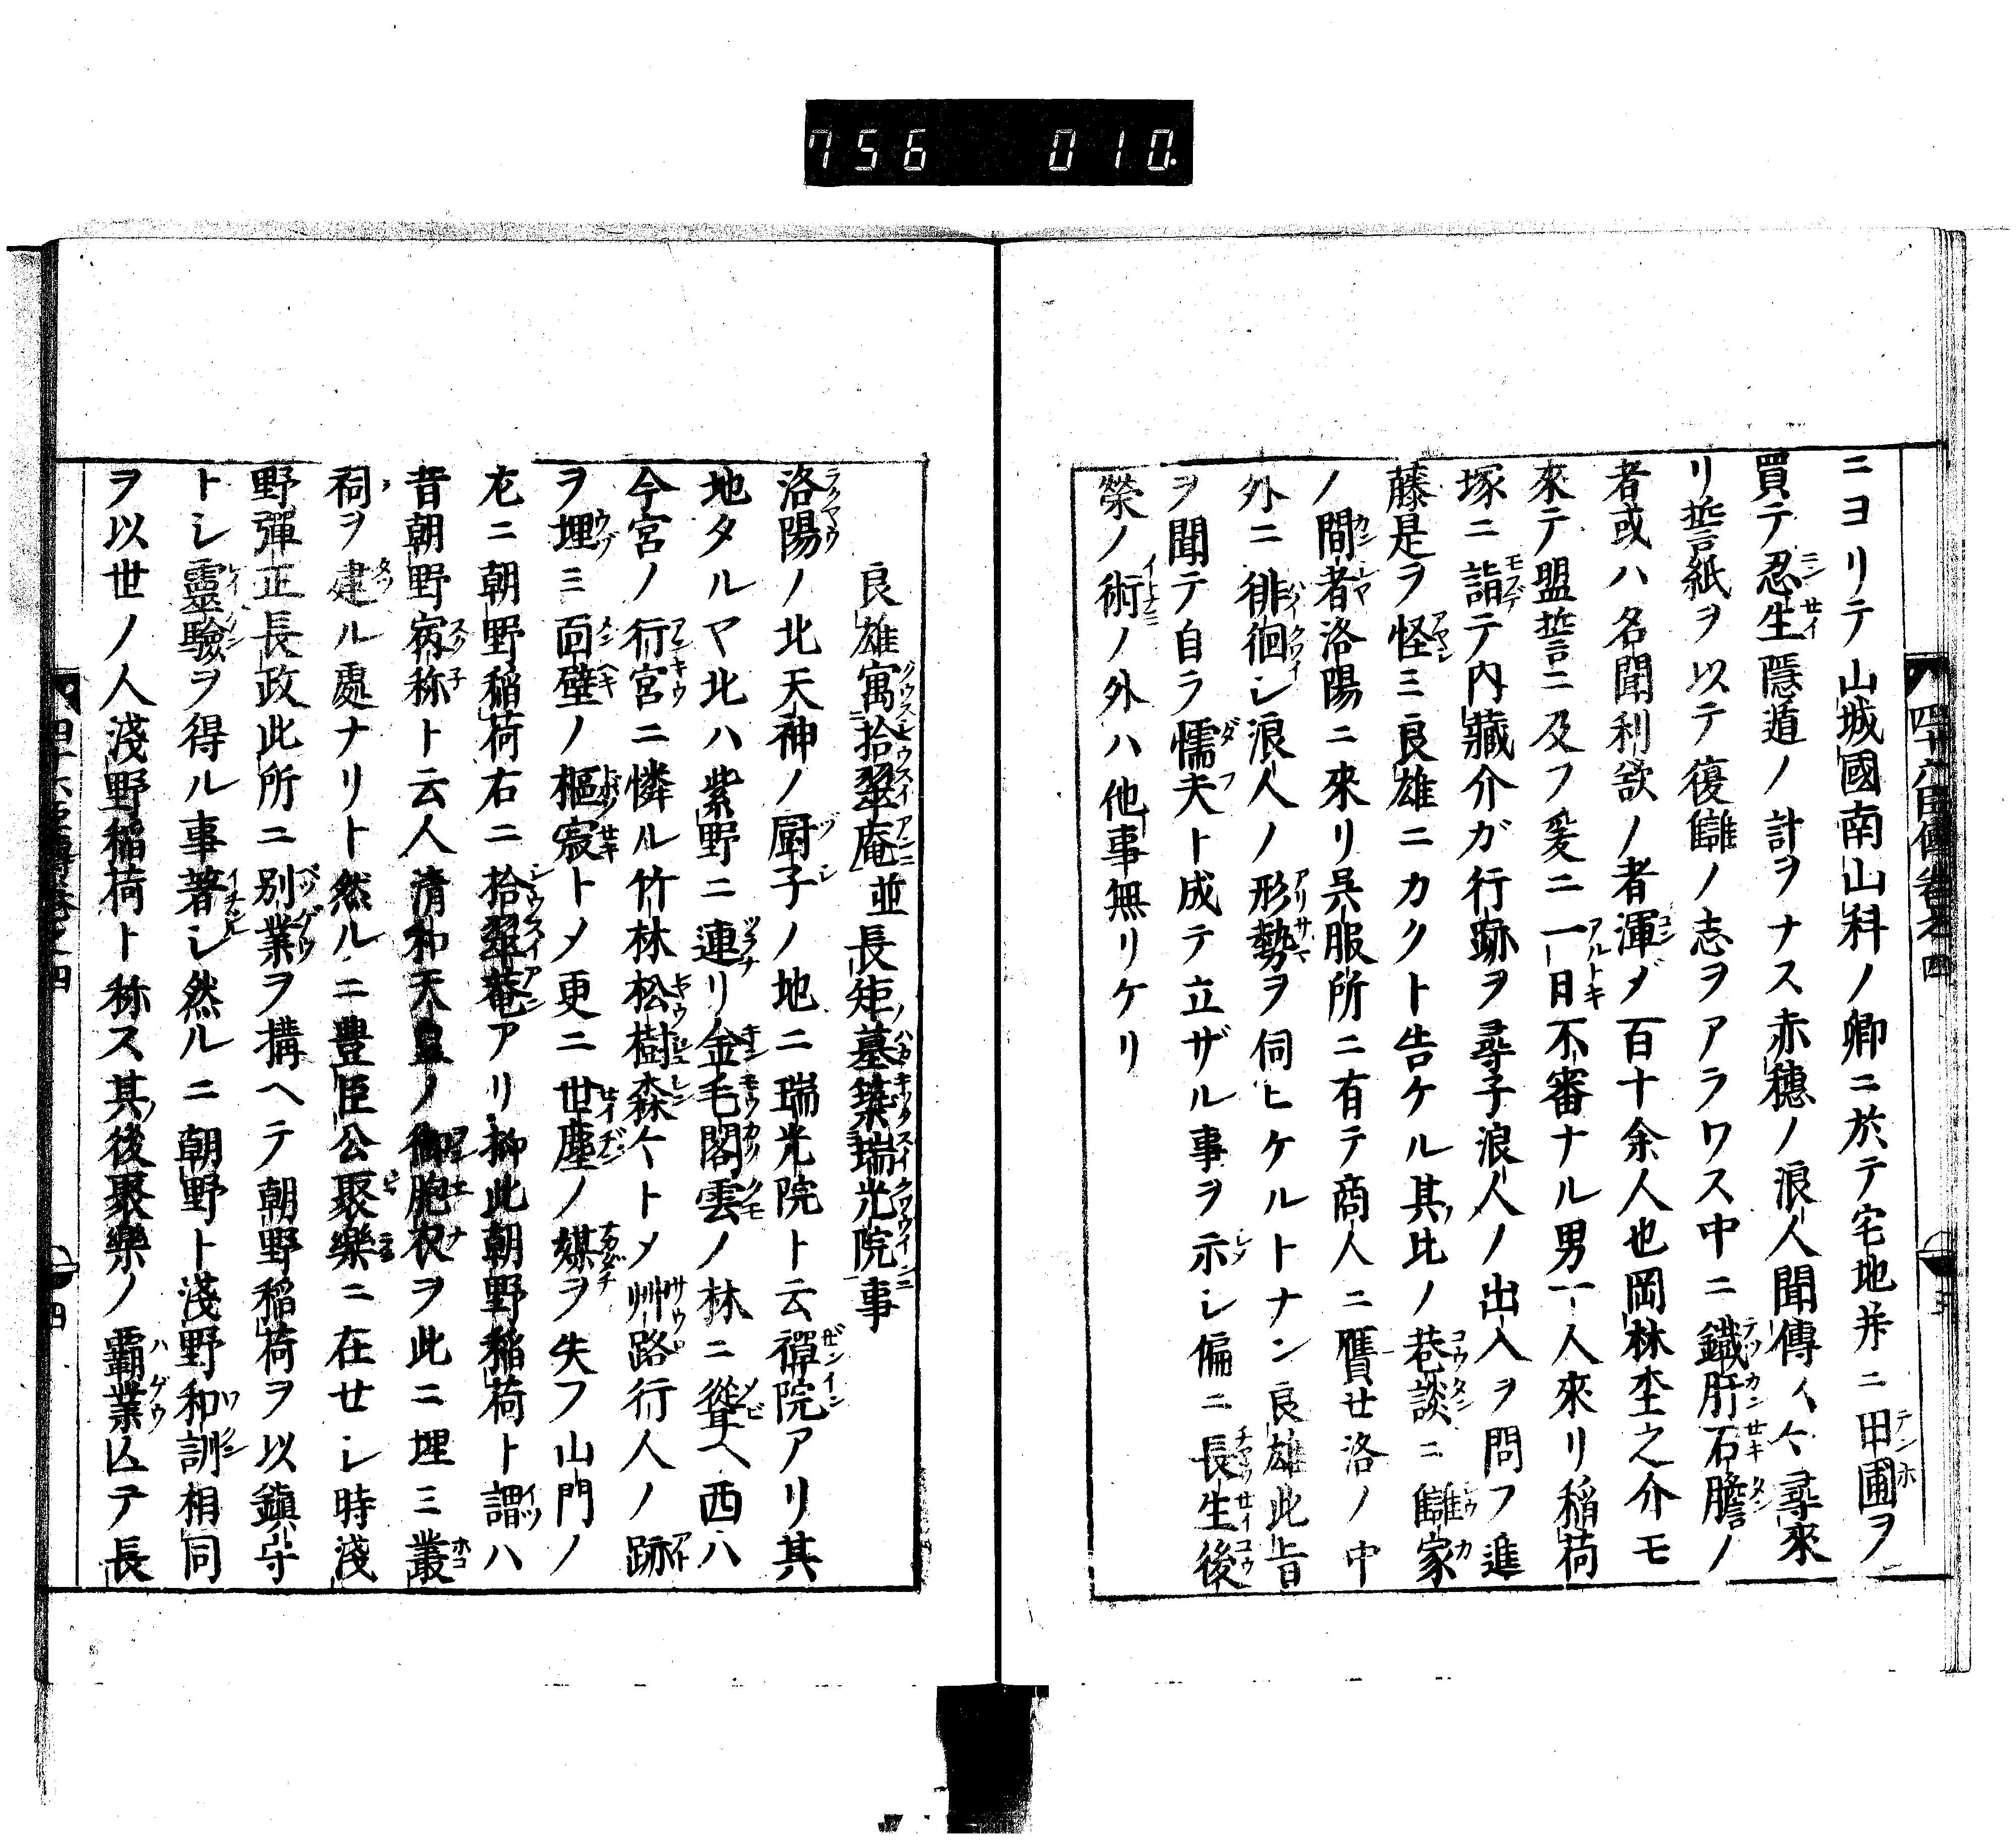 756 010.
四十六臣傳卷之四
ニヨリテ山城國南山科ノ卿ニ於テ宅地幷ニ田圃ヲ
買テ忍生隱遁ノ計ヲナス赤穗ノ浪人聞傳ヘ〱尋來
リ誓紙ヲ以テ復讎ノ志ヲアラワス中ニ鐵肝石膽ノ
者或ハ名聞利欲ノ者渾ダ百十余人也岡林杢之介モ
來テ盟誓ニ及フ爰ニ一日不審ナル男一人來リ稲荷
塚ニ詣テ内藏介ガ行跡ヲ尋子浪人ノ出入ヲ問フ進
藤是ヲ怪ミ良雄ニカクト告ケル其比ノ巷談ニ讎家
ノ間者洛陽ニ來リ呉服所ニ有テ商人ニ贋セ洛ノ中
外ニ徘徊シ浪人ノ形勢ヲ伺ヒケルトナン良雄此旨
ヲ聞テ自ラ懦夫ト成テ立ザル事ヲ示シ偏ニ長生後
榮ノ術ノ外ハ他事無リケリ
良雄寓拾翠庵並長矩墓築瑞光院事
洛陽ノ北天神ノ厨子ノ地ニ瑞光院ト云禪院アリ其
地タルヤ北ハ紫野ニ連リ金毛閣雲ノ林ニ聳ヘ西ハ
今宮ノ行宮ニ憐ル竹林松樹森〱トメ艸路行人ノ跡
ヲ埋ミ面壁ノ樞寂トメ更ニ世塵ノ媒ヲ失フ山門ノ
左ニ朝野稲荷右ニ拾翠菴アリ抑此朝野稲荷ト謂ハ
昔朝野宿称ト云人清和天皇ノ御胞衣ヲ此ニ埋ミ叢
祠ヲ建ル處ナリト然ルニ豊臣公聚樂ニ在セシ時淺
野彈正長政此所ニ別業ヲ搆ヘテ朝野稲荷ヲ以鎮守
トシ靈驗ヲ得ル事著シ然ルニ朝野ト淺野和訓相同
ヲ以世ノ人淺野稲荷ト称ス其後聚樂ノ霸業亾テ長
四十六臣傳卷之四
四